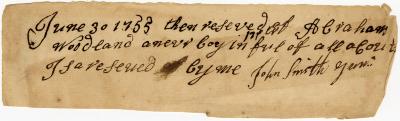 June 30 1733 then reseved of Abraham
Woodland a never boy in ful of all acou
I sa reseued by me John Smith